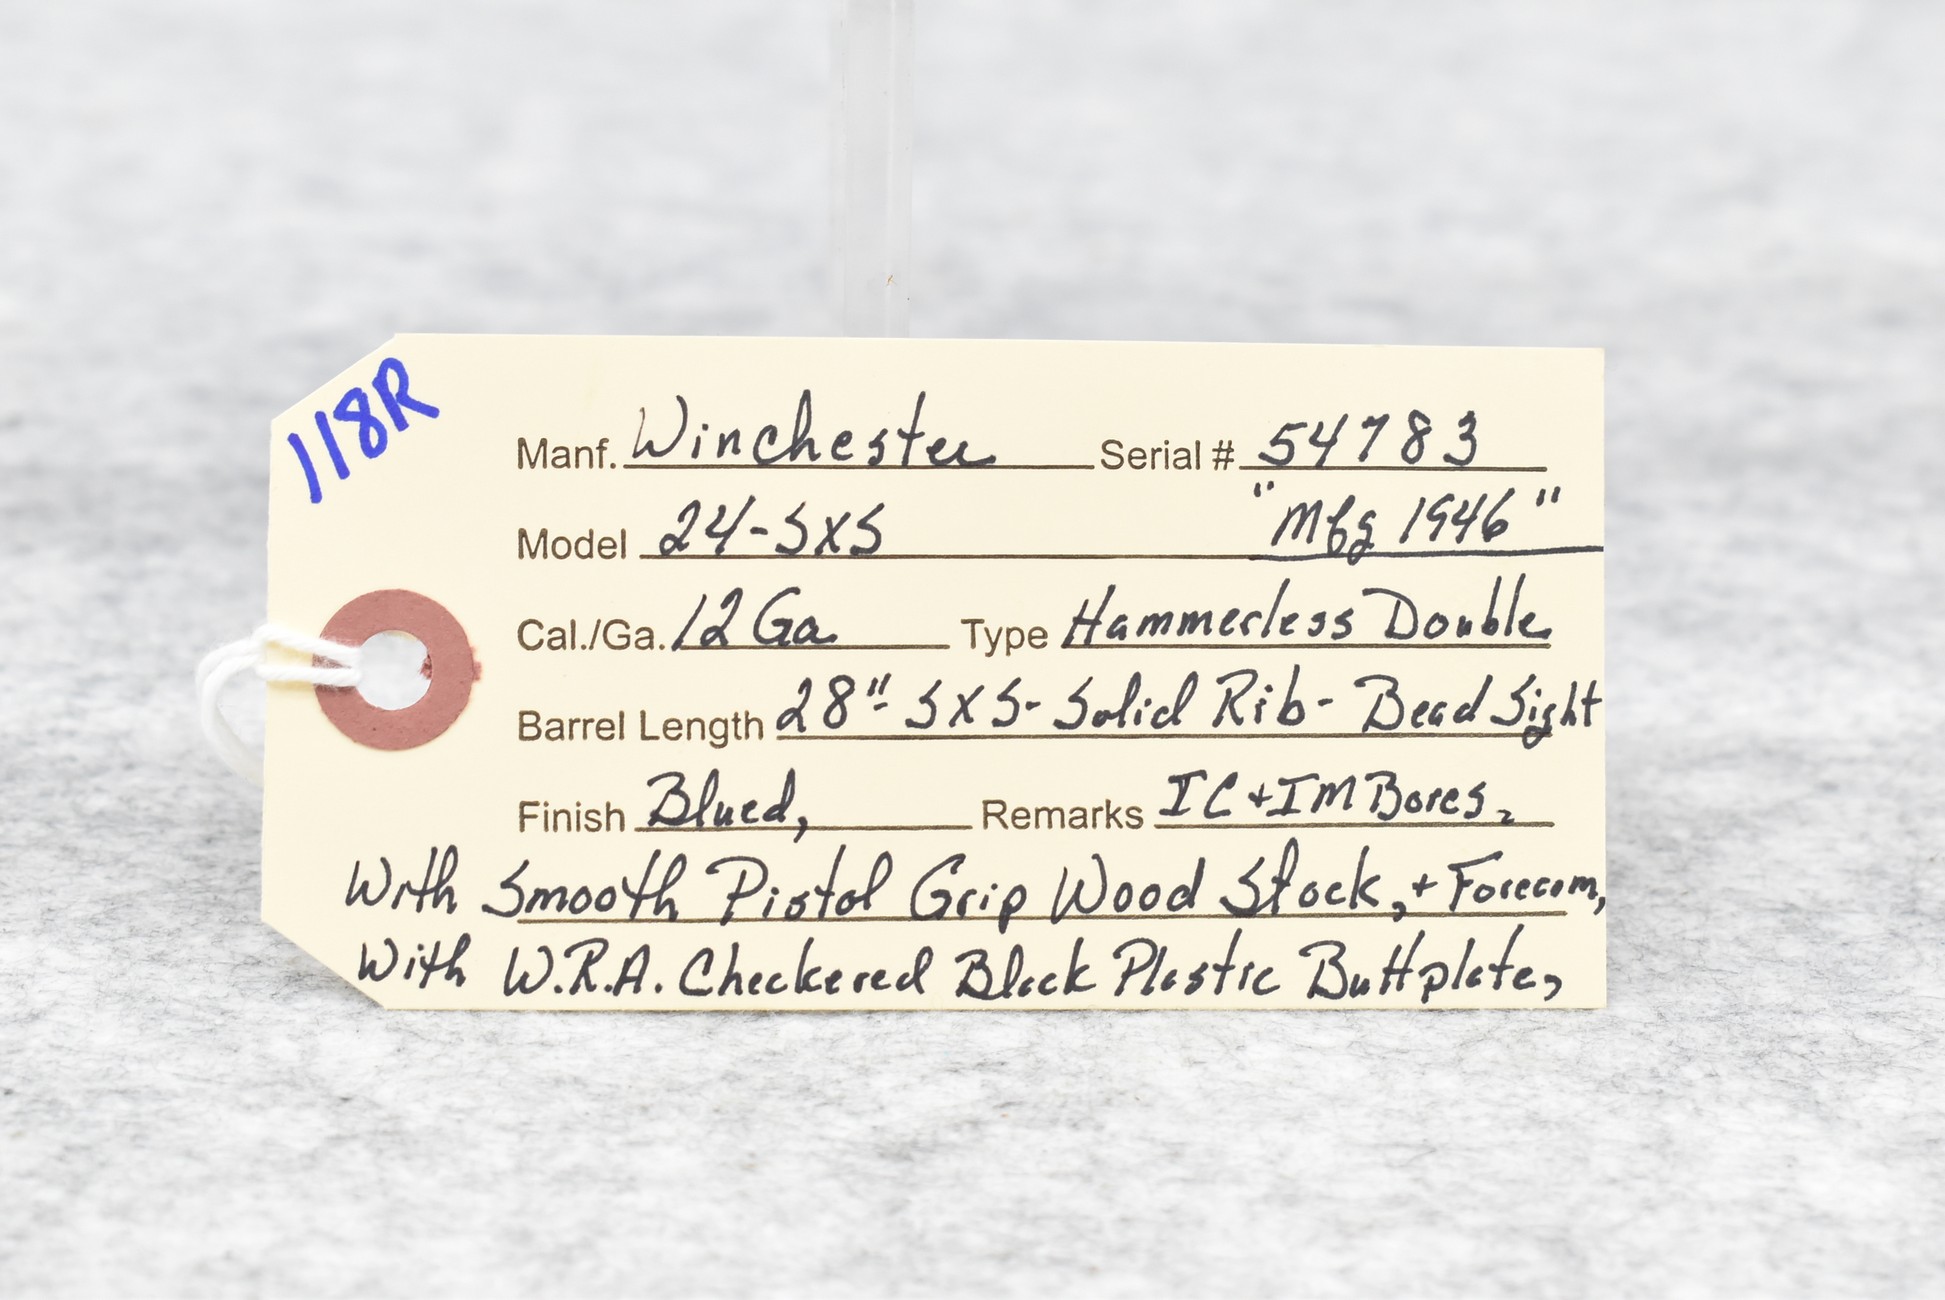 118R
Manf. Winchester Serial # 54783
Model 24-SXS "Mfg 1946"
Cal./Ga. 12 Ga. Type Hammerless Double
Barrel Length 28"- SXS- Solid Rib- Bead Sight
Finish Blued, Remarks IC + IM Bores,
With Smooth Pistol Grip Wood Stock, + Forearm,
With W.R.A. Checkered Black Plastic Buttplate,